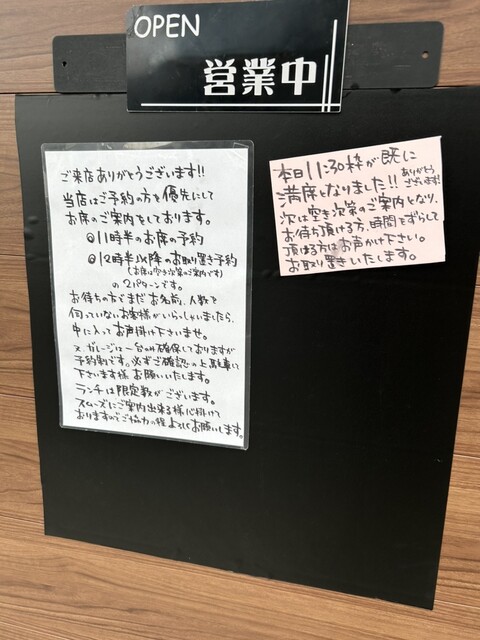 OPEN
営業中
ご来店ありがとうございます!!
当店はご予約の方を優先にして
お席のご案内をしております。
◎11時半のお席の予約
◎12時半以降のお取り置き予約
(お席は空き次第のご案内です)
の2パターンです。
お待ちの方でまだお名前、人数を
伺っていないお客様がいらっしゃいましたら、
中に入ってお声掛け下さいませ。
×ガレージは一台のみ確保しておりますが
予約制です。必ずご確認の上駐車して
下さいます様お願いいたします。
ランチは限定数がございます。
スムーズにご案内出来る様心掛けて
おりますのでご協力の程よろしくお願いします。
本日11:30枠が既に
満席となりました!! ありがとう
ございます!
次は空き次第のご案内となり、
お待ち頂ける方、時間をずらして
頂ける方はお声かけ下さい。
お取り置きいたします。